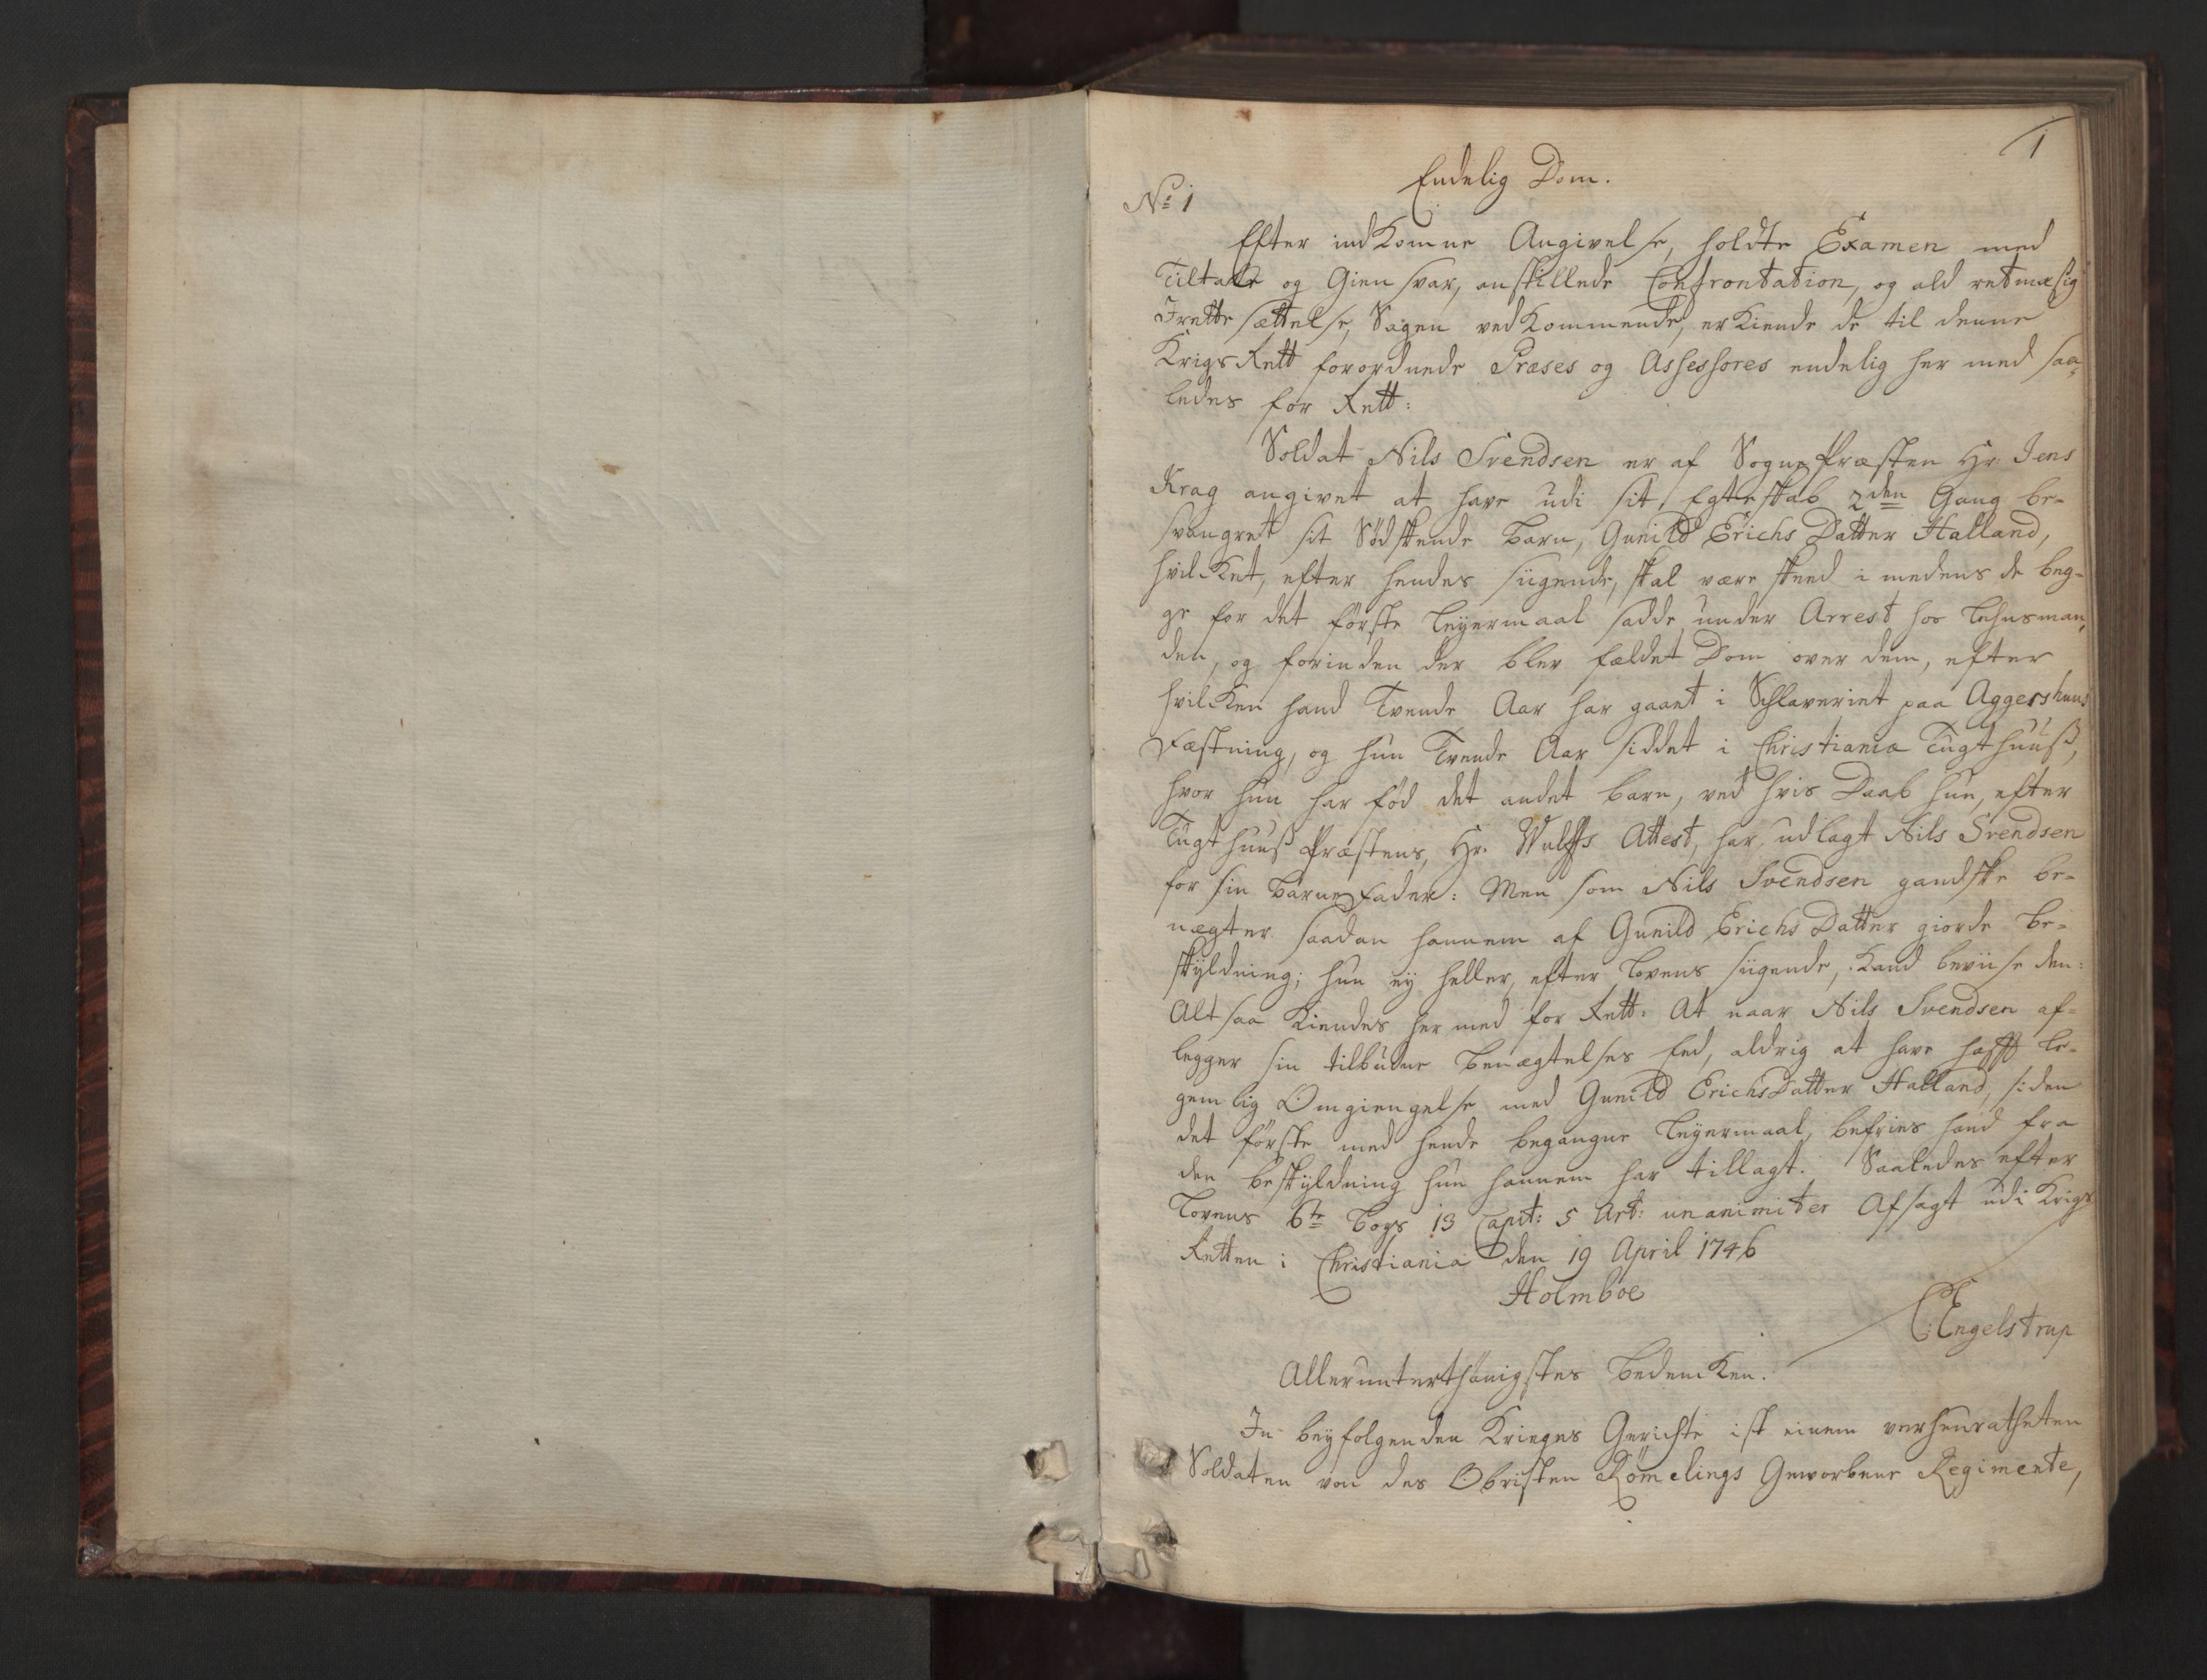 1
Endelig Dom.
No 1
Efter indkomne Angivelse, holdte Examen med
Tiltale og Giensvar, anstillede Confrontation, og ald retmæsig
Irettesættelse, Sagen vedkommende, erkiende de til denne
KrigsRett forordnede Præses og Assessores endelig her med saa-
ledes for Rett:
Soldat Nils Svendsen er af SognePræsten Hr. Jens
Krag angivet at have udi sit Egteskab 2den Gang be-
svangret sit Södskende Barn, Gunild Erichs Datter Halland,
hvilket, efter hendes siigende, skal være skeed i medens de beg-
ge for det förste Leyermaal sadde under Arrest hos Lehnsman-
den, og forinden der blev fældet Dom over dem, efter
hvilken hand Tvende Aar har gaaet i Schlaveriet paa Aggershuus
Fæstning, og hun Tvende Aar siddet i Christiania Tugthuuß,
hvor hun har fød det andet barn, ved hvis Daab hun, efter
Tugthuuß Præstens, Hr. Wulffs Attest, har udlagt Nils Svendsen
for sin BarneFader: Men som Nils Svendsen gandske be-
nægter saadan hannem af Gunild Erichs Datter giorde be-
skyldning; hun ey heller, efter Lovens siigende, kand beviise den:
Altsaa kiendes her med for Rett: At naar Nils Svendsen af-
legger sin tilbudne Benægtelses Eed, aldrig at have hafft le-
gemlig Omgiengelse med Gunild ErichsDatter Halland, siden
det förste med hende begangne Leyermaal, befries hand fra
den beskyldning hun hannem har tillagt. Saaledes efter
Lovens 6te Bogs 13 Capit: 5 Art: unanimiter Afsagt udi Krigs
Retten i Christiania den 19 April 1746
Holmboe
C: Engelstrup
Allerunterthänigstes Bedencken.
In beyfolgenden Krieges Gerichte ist einem verheuratheten
Soldaten von des Obristen Römelings Geworbene Regimente,